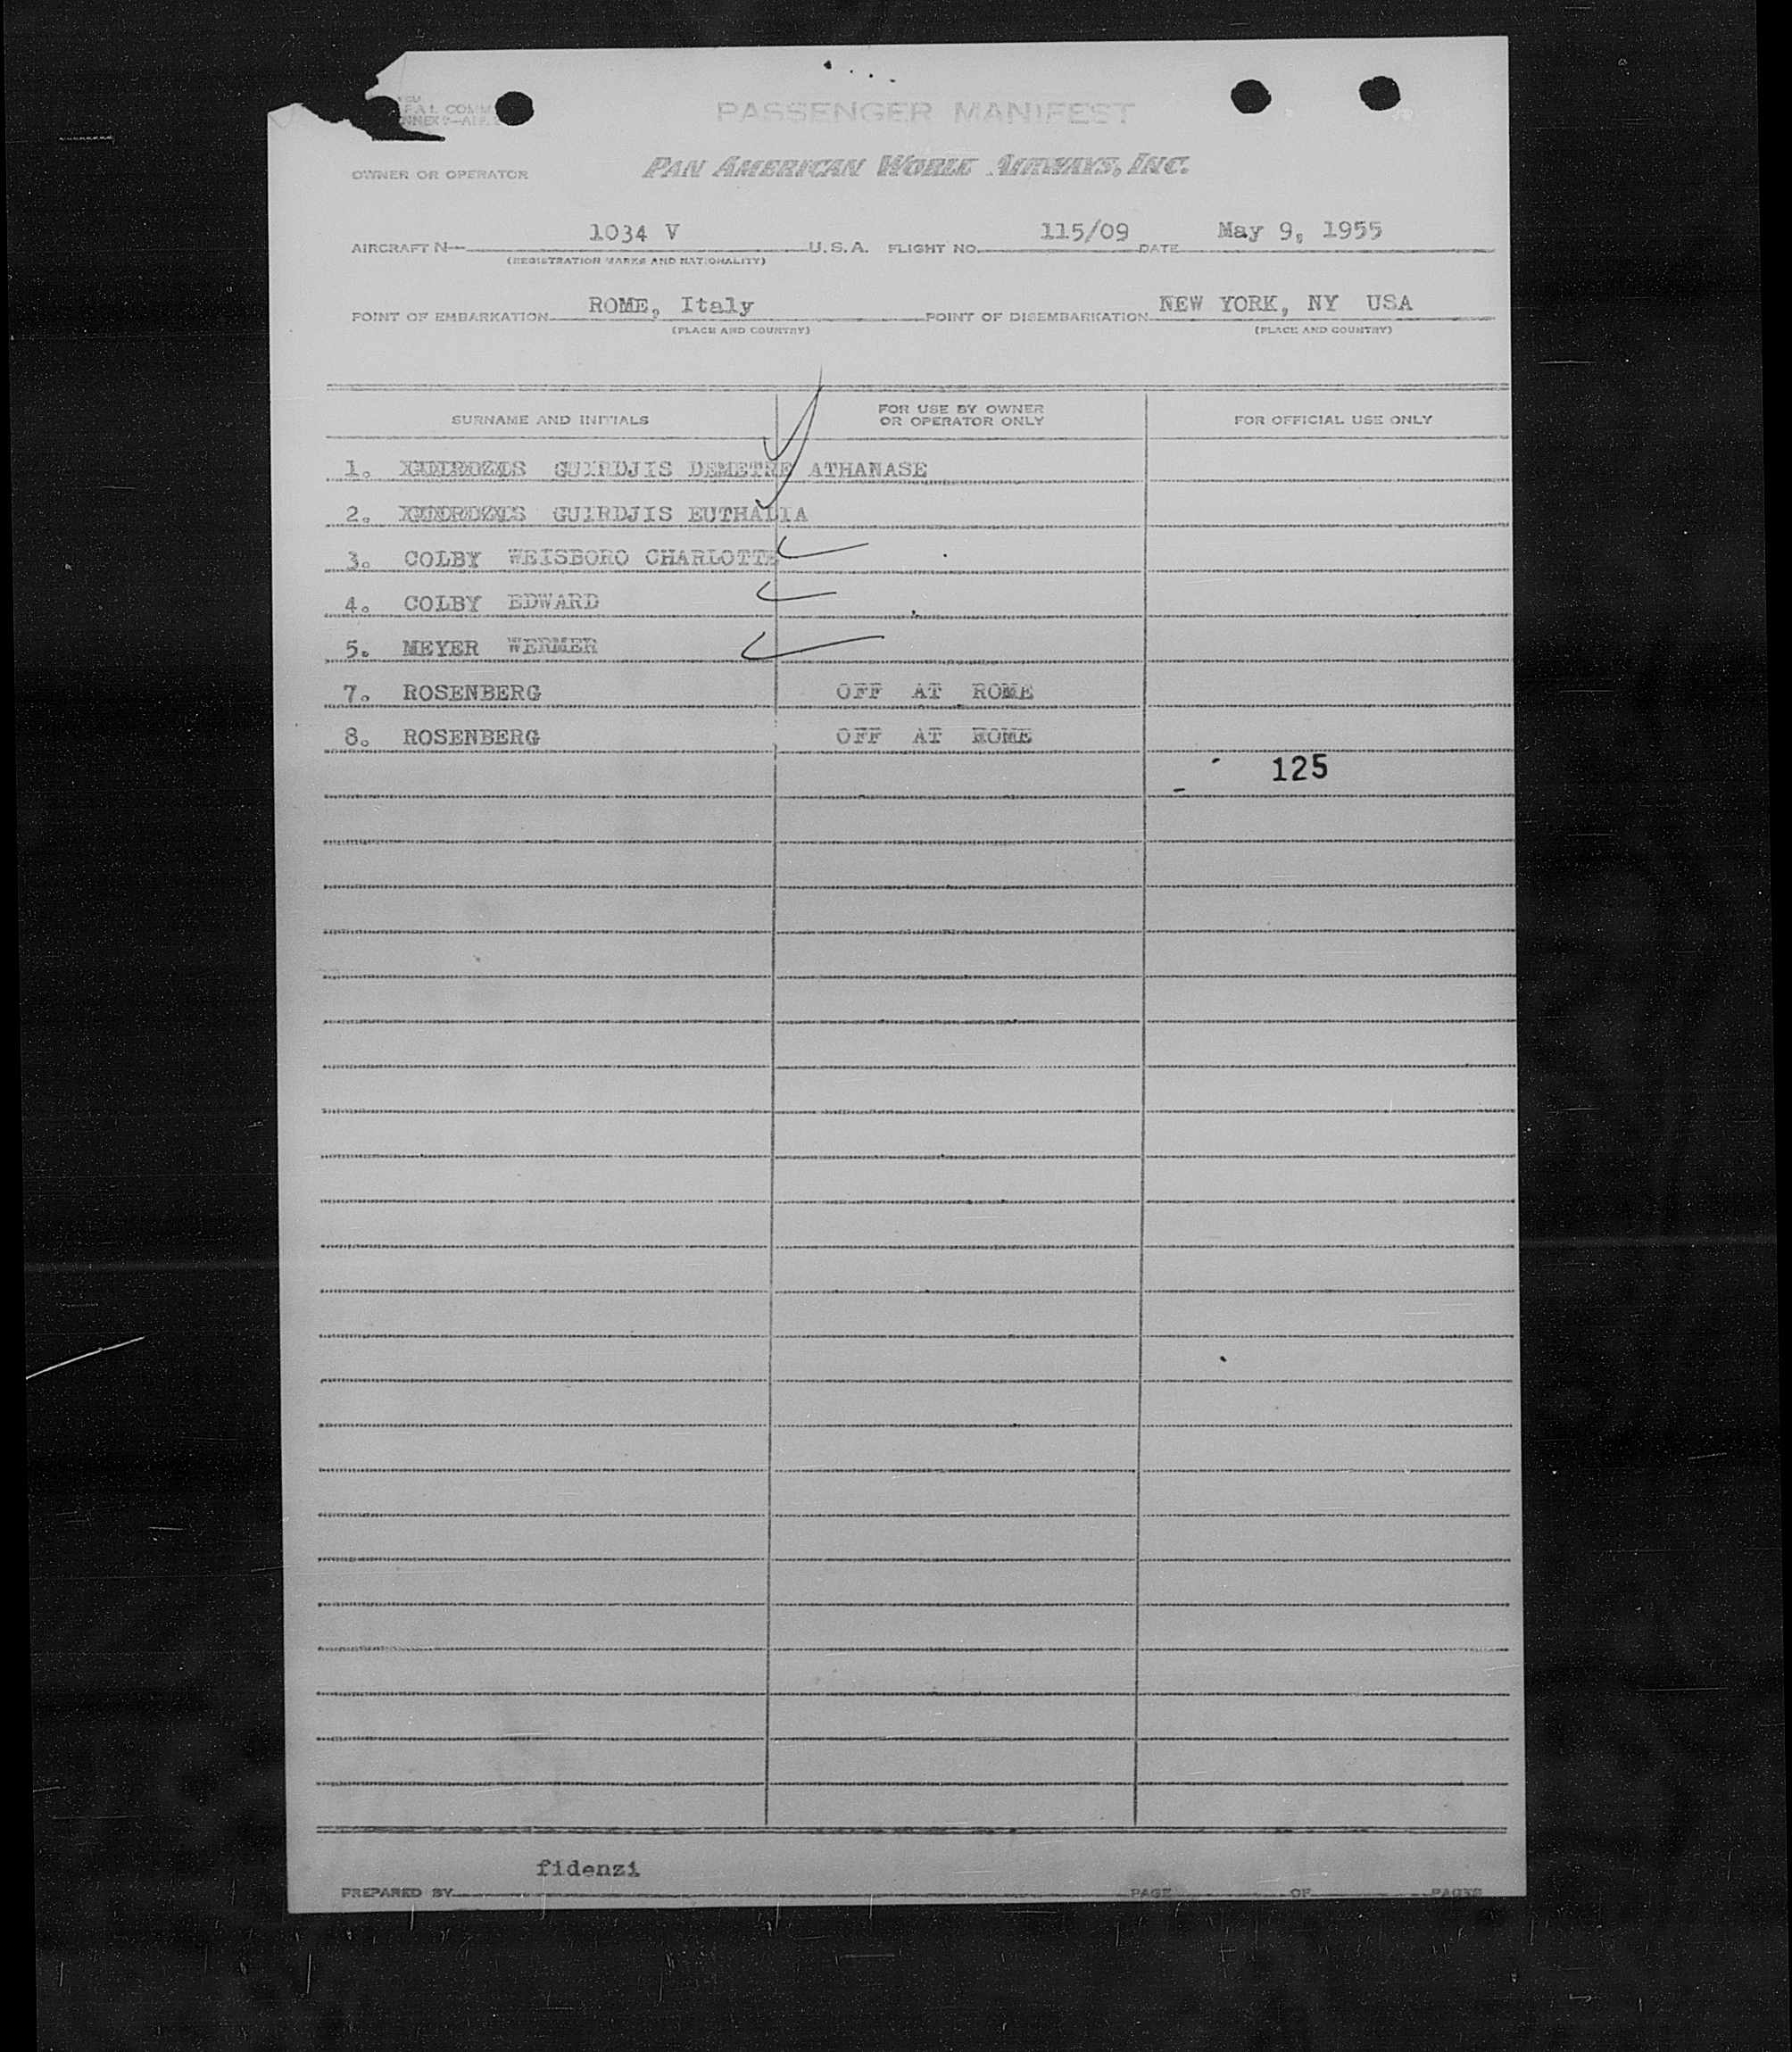 PASSENGER MANIFEST
OWNER OR OPERATOR PAN AMERICAN WORLD AIRWAYS, INC.
AIRCRAFT N 1034 V U.S.A. FLIGHT NO. 115/09 DATE May 9, 1955
(REGISTRATION MARKS AND NATIONALITY)
POINT OF EMBARKATION ROME, Italy POINT OF DISEMBARKATION NEW YORK, NY USA
(PLACE AND COUNTRY) (PLACE AND COUNTRY)
SURNAME AND INITIALS FOR USE BY OWNER OR OPERATOR ONLY FOR OFFICIAL USE ONLY
1. GUIRDJIS DEMETRE ATHANASE
2. GUIRDJIS EUTHALIA
3. COLBY WEISBORO CHARLOTTE
4. COLBY EDWARD
5. MEYER WERMER
7. ROSENBERG OFF AT ROME
8. ROSENBERG OFF AT ROME
125
fidenzi
PREPARED BY PAGE OF PAGES